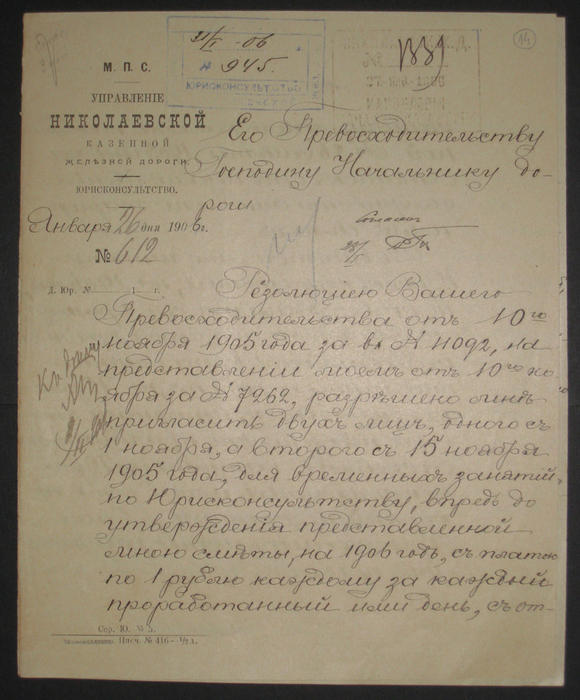 14
31/I - 06
№ 945.
ЮРИСКОНСУЛЬТСТВО
М. П. С.
УПРАВЛЕНІЕ
НИКОЛАЕВСКОЙ
КАЗЕННОЙ
ЖЕЛѢЗНОЙ ДОРОГИ
ЮРИСКОНСУЛЬТСТВО.
Января 26 дня 1906 г.
№ 612
Д. Юр. № 1 г.
Его Превосходительству
Господину Начальнику до-
роги
Согласен
28/I
Резолюціею Вашего
Превосходительства отъ 10го
ноября 1905 года за вх № 11092, на
представленіи моемъ отъ 10го но-
ября за № 7262, разрѣшено мнѣ
пригласить двухъ лицъ, одного съ
1 ноября, а второго съ 15 ноября
1905 года, для временныхъ занятій
по Юрисконсультству, впредь до
утвержденія представленной
мною смѣты, на 1906 годъ, съ платою
по 1 рублю каждому за каждый
проработанный ими день, съ от-
Сер. Ю. № 5.
Писч. № 416 - 1/2 л.